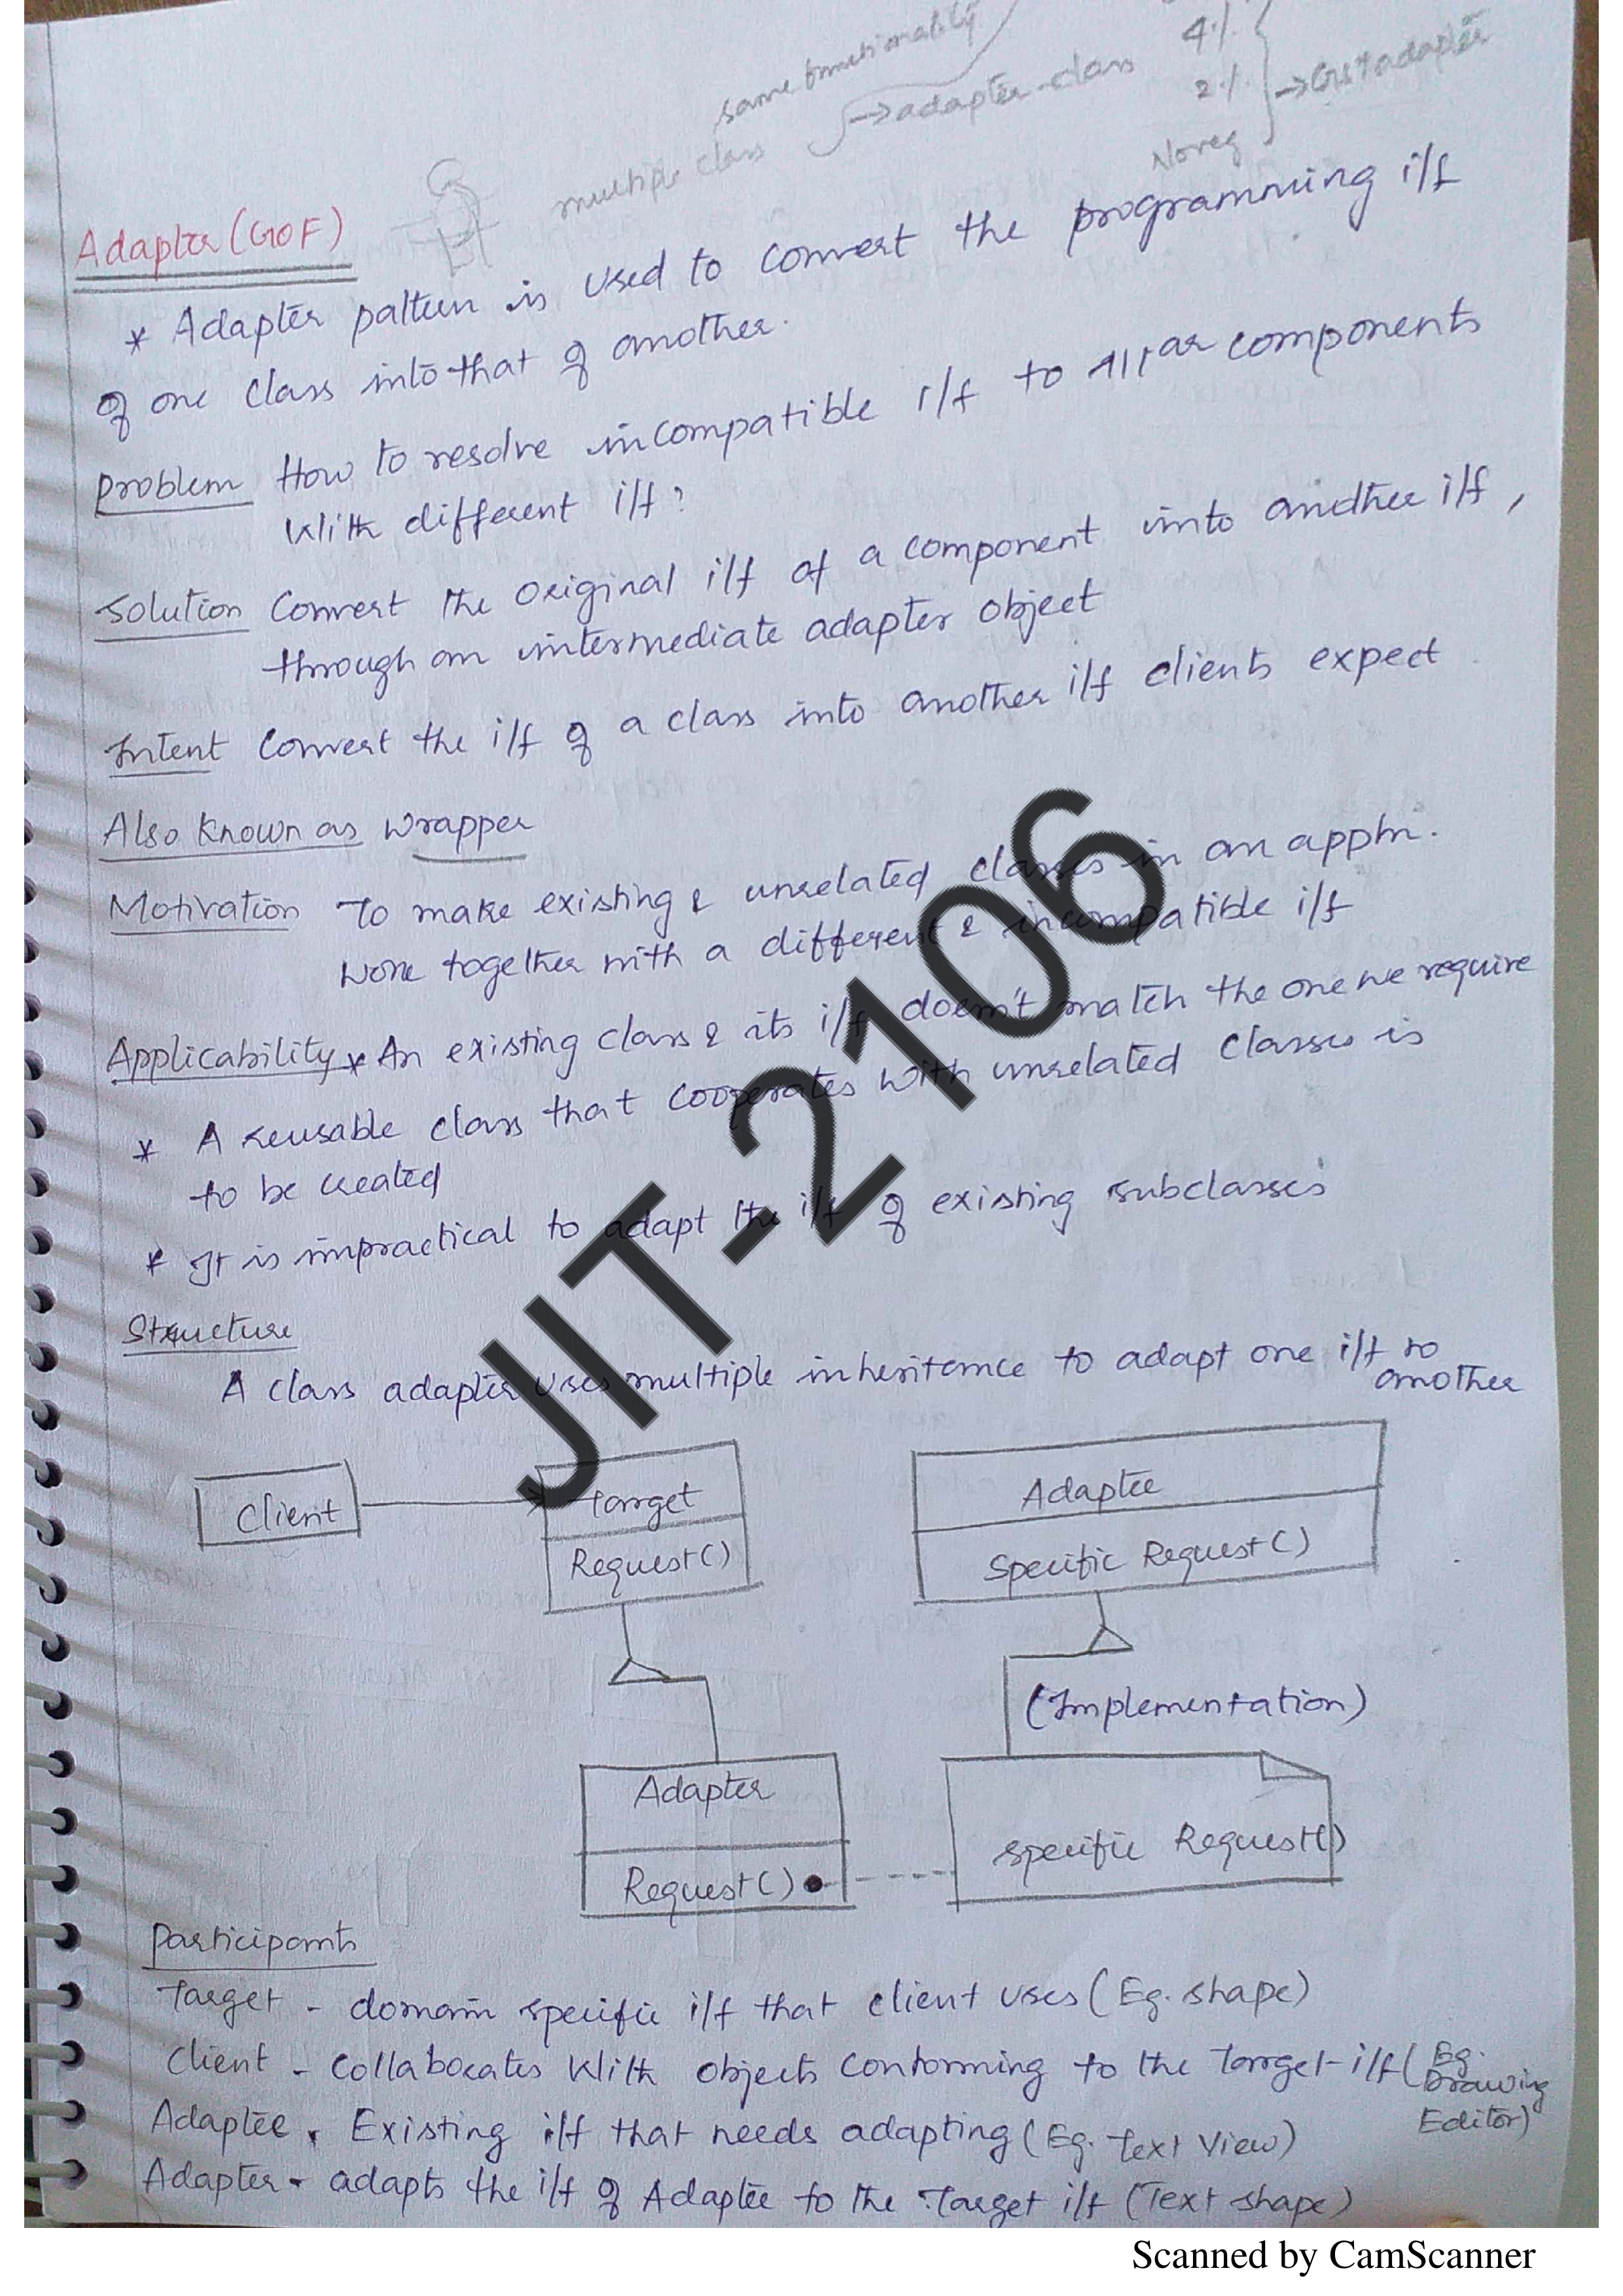 same functionality
4%
multiple class → adapter class
2%
→ GST adapter
Noreg
Adapter (GOF)
* Adapter pattern is used to convert the programming i/f
of one class into that of another.
Problem How to resolve incompatible i/f to components
With different i/f?
Solution Convert the original i/f of a component into another i/f,
through an intermediate adapter object
Intent Convert the i/f of a class into another i/f clients expect
Also Known as Wrapper
Motivation To make existing & unrelated classes in an appln.
work together with a different & incompatible i/f
Applicability * An existing class & its i/f doesn't match the one we require
* A reusable class that cooperates with unrelated classes is
to be created
* It is impractical to adapt the i/f of existing subclasses
Structure
A class adapter uses multiple inheritance to adapt one i/f to
another
Client
Target
Request()
Adaptee
Specific Request()
(Implementation)
Adapter
Request()
specific Request()
Participants
Target - domain specific i/f that client uses (Eg. shape)
Client - Collaborates With objects conforming to the Target i/f (Eg.
Drawing
Editor)
Adaptee - Existing i/f that needs adapting (Eg. Text View)
Adapter - adapts the i/f of Adaptee to the Target i/f (Text shape)
JIT-2106
Scanned by CamScanner